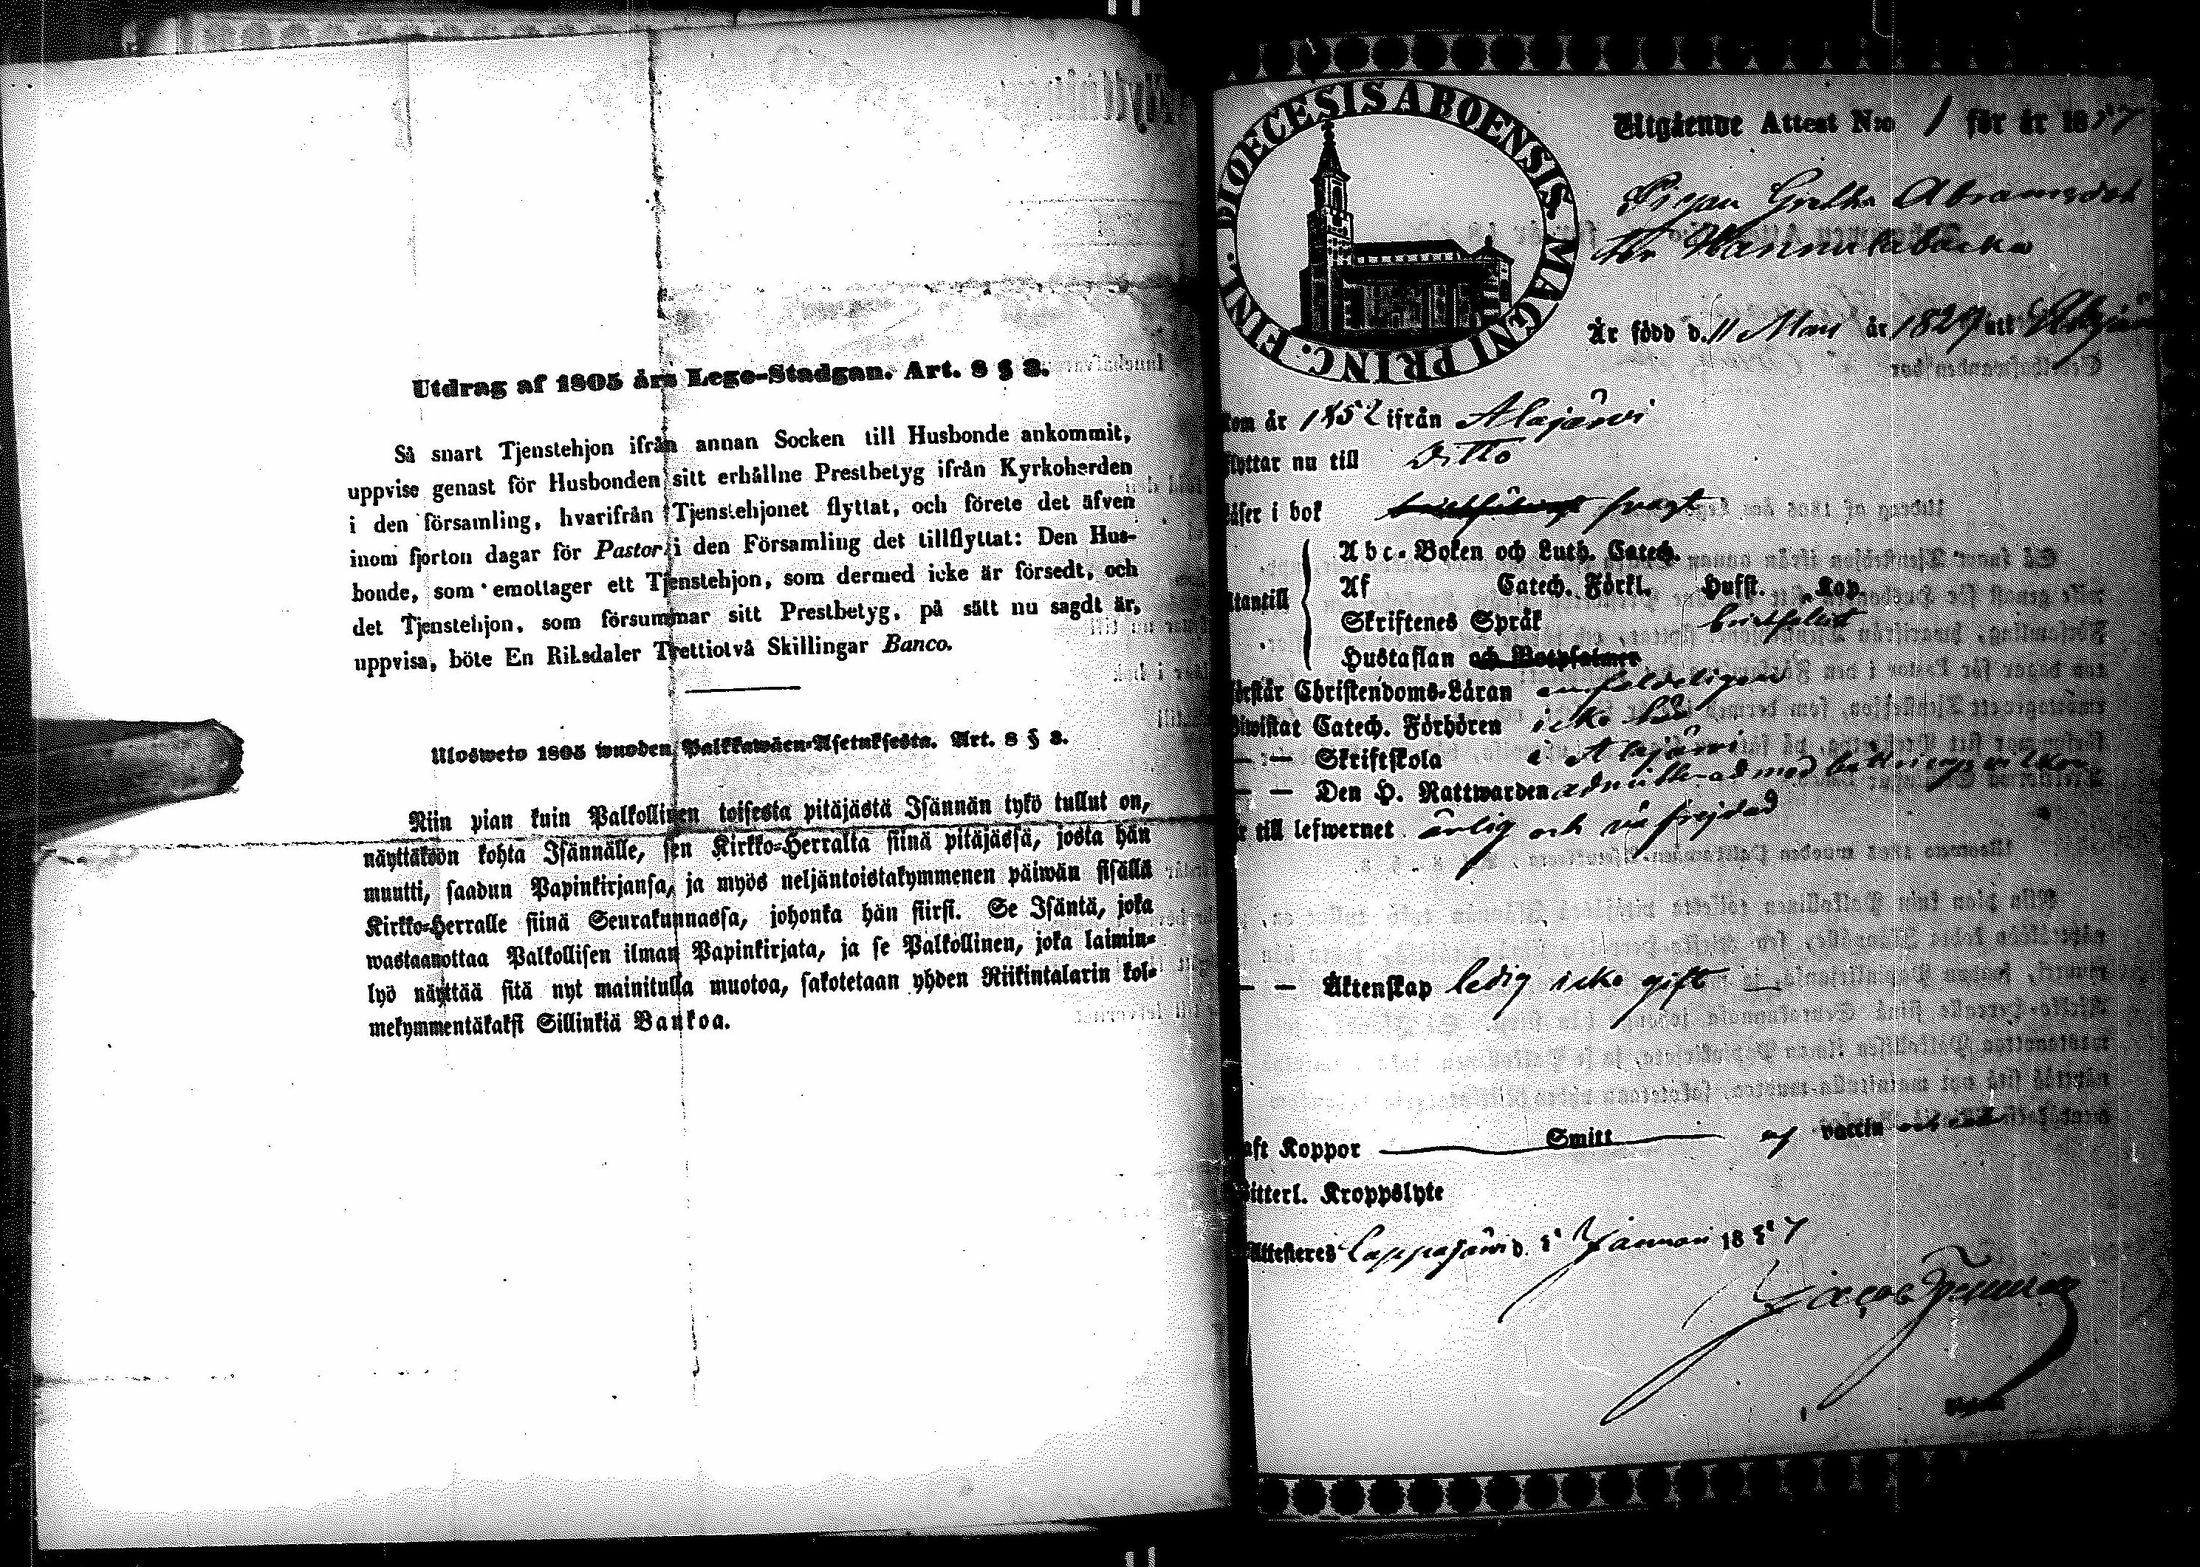 Utdrag af 1805 års Lego-Stadgan. Art. 8 § 3.
Så snart Tjenstehjon ifrån annan Socken till Husbonde ankommit,
uppvise genast för Husbonden sitt erhållne Prestbetyg ifrån Kyrkoherden
i den församling, hvarifrån Tjenstehjonet flyttat, och förete det äfven
inom fjorton dagar för Pastor i den Församling det tillflyttat: Den Hus-
bonde, som emottager ett Tjenstehjon, som dermed icke är försedt, och
det Tjenstehjon, som försummar sitt Prestbetyg, på sätt nu sagdt är,
uppvisa, böte En Riksdaler Trettiotvå Skillingar Banco.
Ulosweto 1805 wuoden Palkkawäen-Asetuksesta. Art. 8 § 3.
Niin pian kuin Palkollinen toisesta pitäjästä Isännän tykö tullut on,
näyttäköön kohta Isännälle, sen Kirkko-Herralta siinä pitäjässä, josta hän
muutti, saadun Papinkirjansa, ja myös neljäntoistakymmenen päiwän sisällä
Kirkko-Herralle siinä Seurakunnassa, johonka hän siirsi. Se Isäntä, joka
wastaanottaa Palkollisen ilman Papinkirjata, ja se Palkollinen, joka laimin-
lyö näyttää sitä nyt mainitulla muotoa, sakotetaan yhden Riikintalarin kol-
mekymmentäkaksi Sillinkiä Bankoa.
DIOECESIS ABOENSIS MAGNI PRINC. FINL.
Utgående Attest N:o 1 för år 1857
Pigan Gretha Abramsdot
fr Hannulabacka
Är född d. 11 Mars år 1829 uti
Kom år 1852 ifrån Alajärvi
flyttar nu till Ditto
Läser i bok svagt
Utantill
Abc-Boken och Luth. Catech.
Af Catech. Förkl. Husst. Kop.
Skriftenes Språk bristfälligt
Hustaflan och Botpsalmer
Förstår Christendoms-Läran enfaldeligen
Biwistat Catech. Förhören icke här
— — Skriftskola i Alajärvi
— — Den H. Nattwarden admitterad med bättrings vilkor
Är till lefwernet ärlig och väl frejdad
— — Äktenskap ledig icke gift —
Haft Koppor Smitt af vaccin
Witterl. Kroppslyte
Attesteres Lappajärvi d. 5 Januari 1857
Jacob